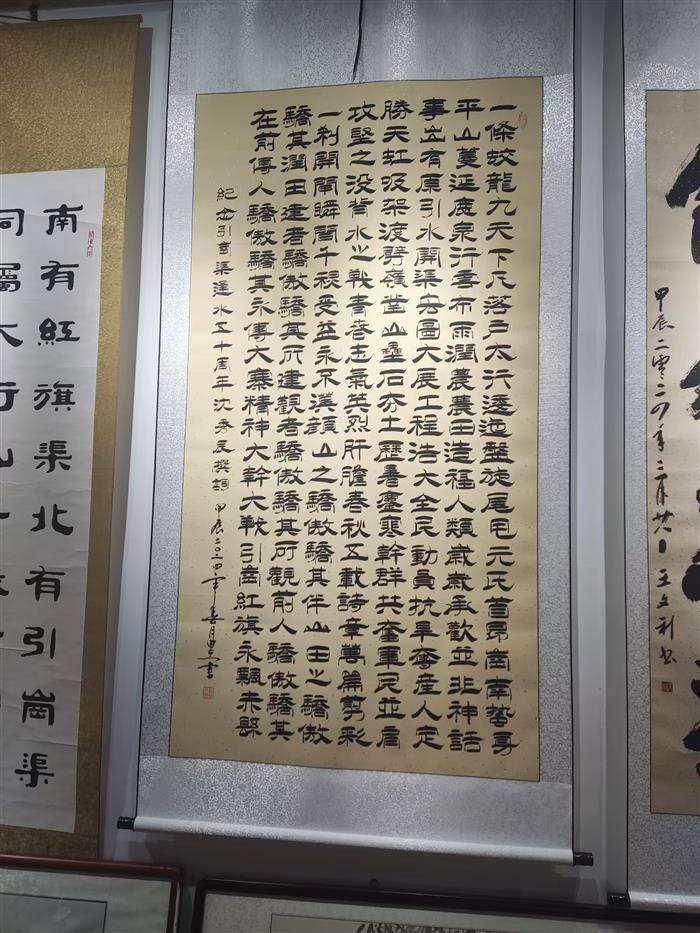 一條蛟龍九天下凡落户太行逶迤盤旋尾甩元氏首昂崗南蟄身
平山蔓延鹿泉行雲布雨潤農農田造福人類歲歲承歡並非神話
事出有原引水開渠宏圖大展工程浩大全民動員抗旱奪産人定
勝天虹吸架渡劈嶺鑿山壘石夯土歷暑鏖寒幹群共奮軍民並肩
攻堅之没背水之戰青春志氣英烈肝膽春秋五載詩章萬篇剪彩
一刹開閘瞬間千秋受益永不漢顔山之驕傲驕其伴山田之驕傲
驕其潤田建者驕傲驕其所建觀者驕傲驕其所觀前人驕傲驕其
在前傳人驕傲驕其永傳大寨精神大幹大戰引崗紅旗永飄赤縣
紀念引崗渠通水五十周年沈 撰詞 甲辰二〇二四年 月 書
甲辰二零二四年二月廿八日王文利書
南有紅旗渠北有引崗渠
同屬太行山